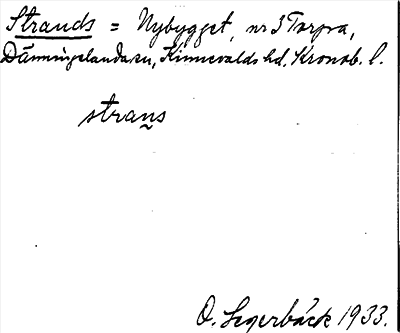 Strands = Nybygget, nr 3 Torpa,
Dänningelanda sn, Kinnevalds hd, Kronob. l.
strans
O. Segerbäck 1933.